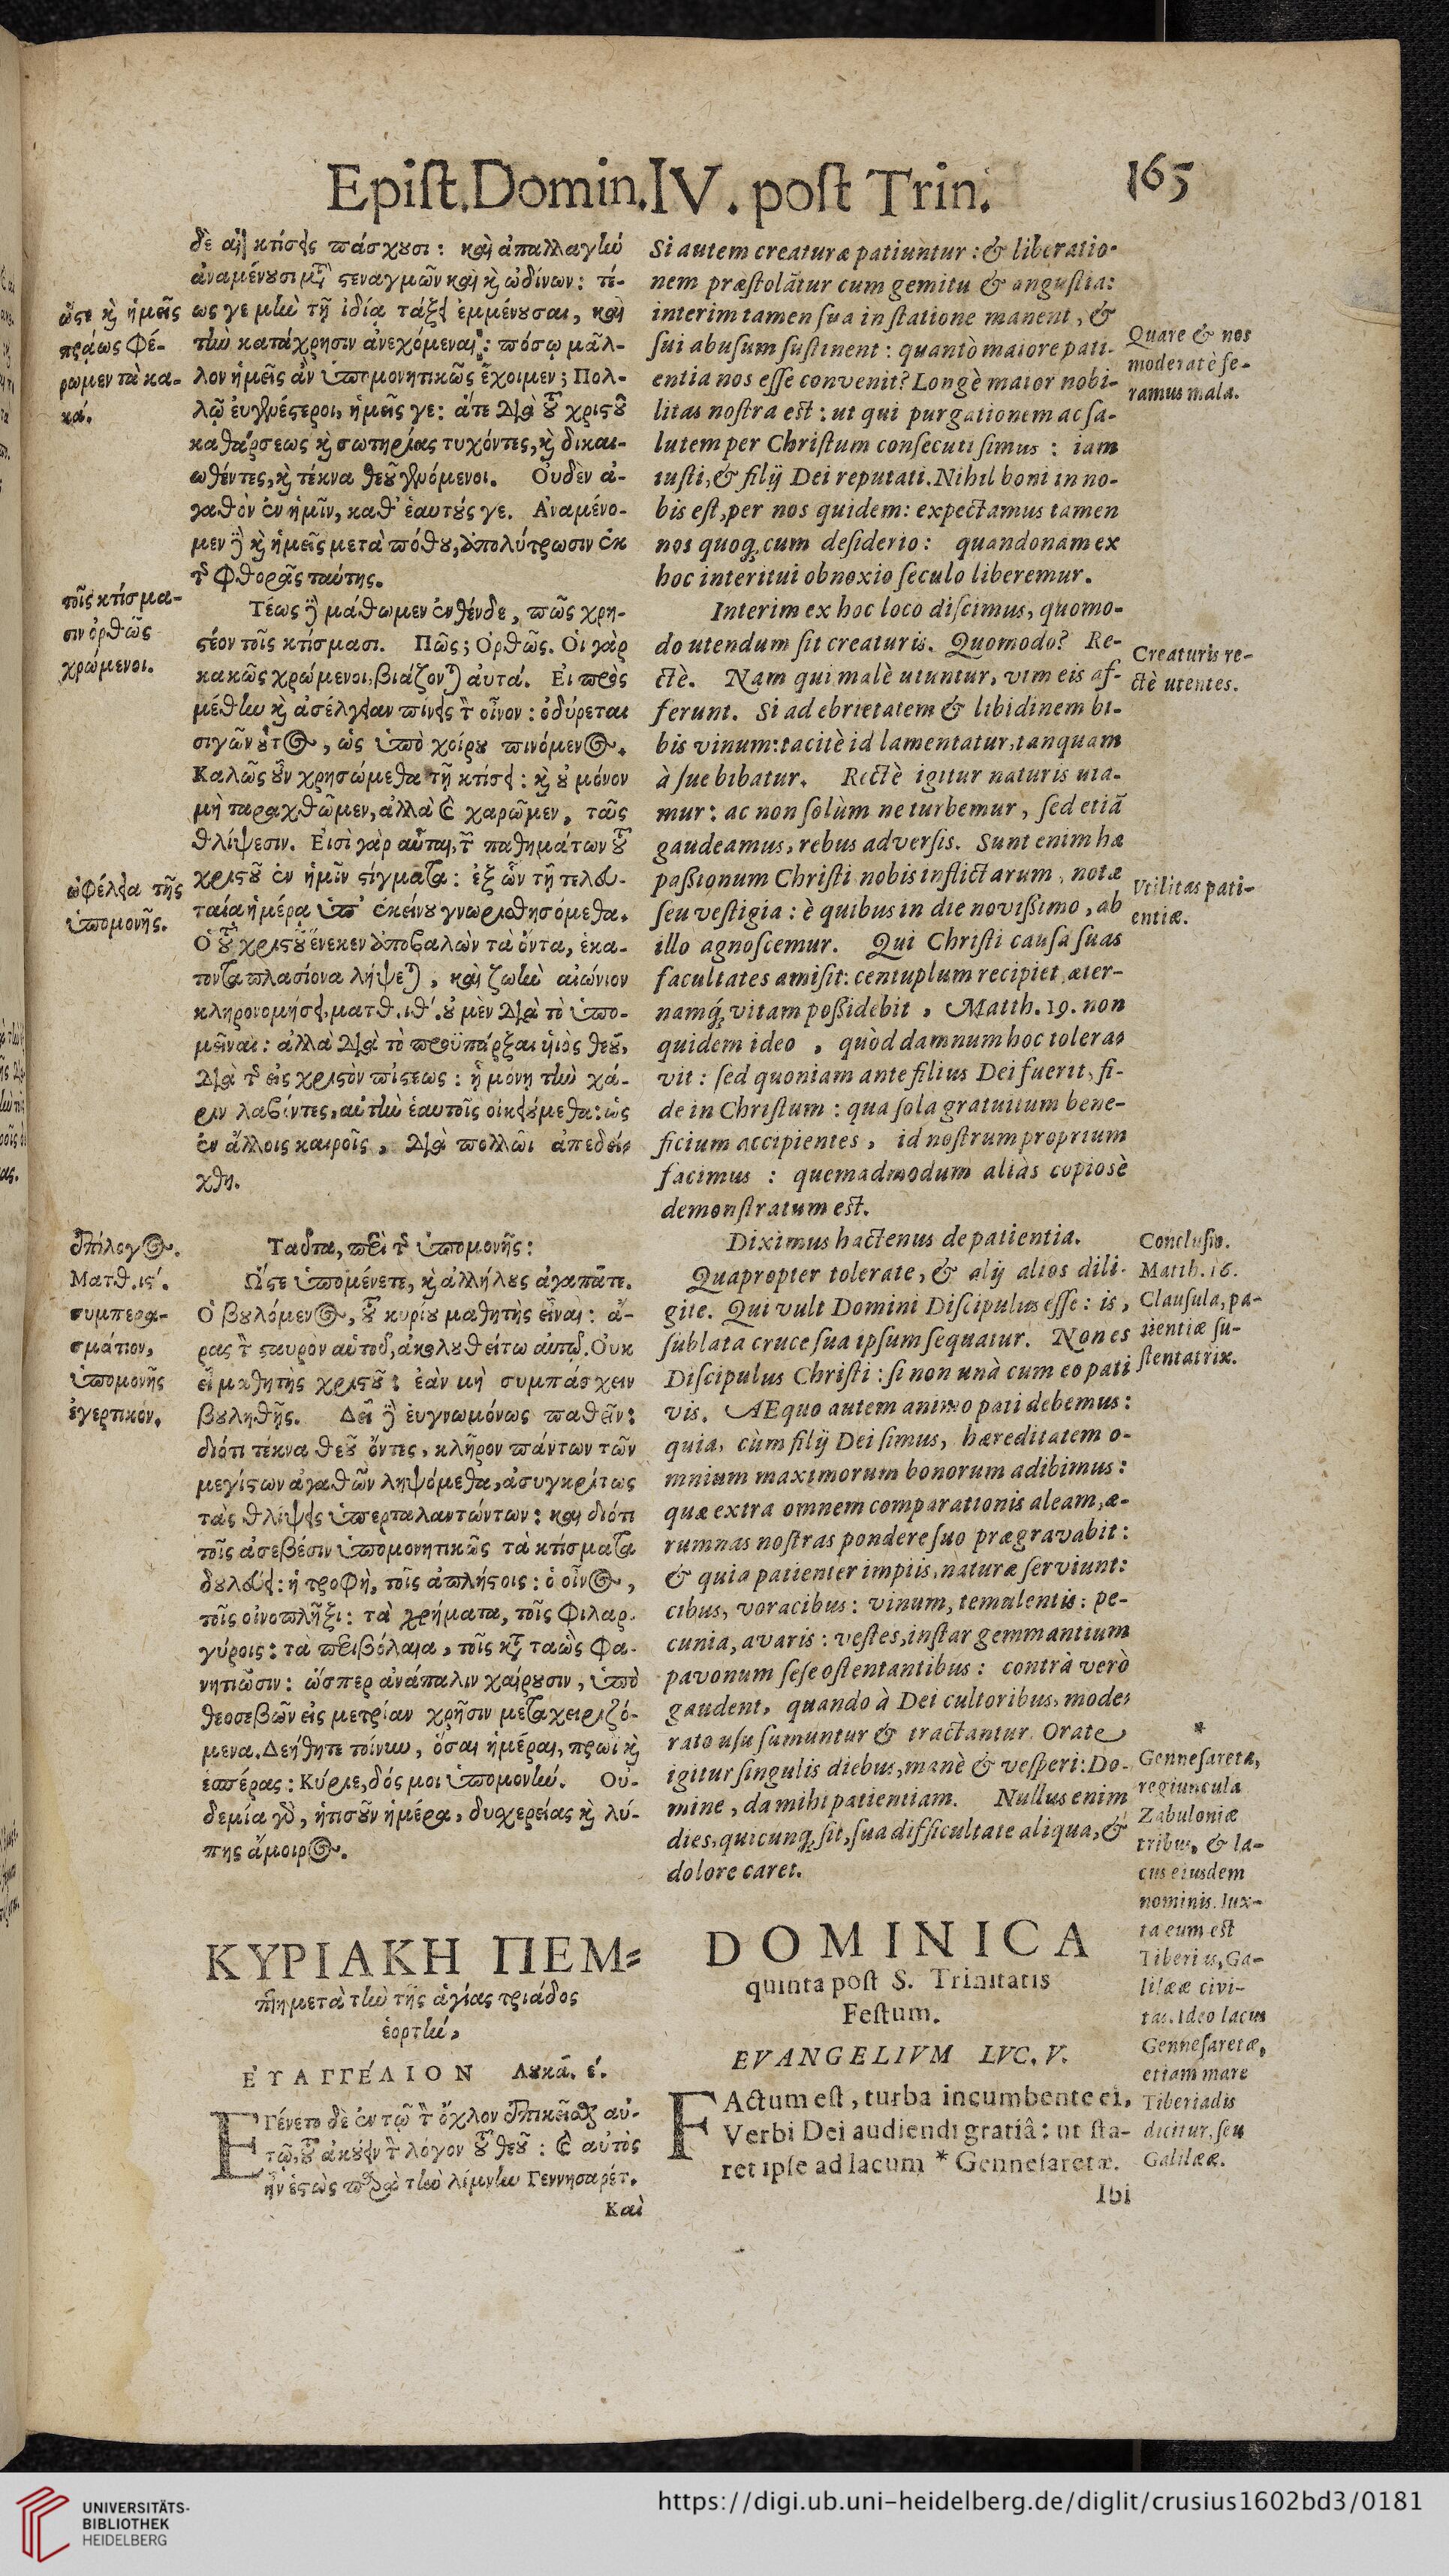 Epiſt. Domin. IV. poſt Trin. 165
δὲ αἱ κτίσεις πάσχουσι: καὶ ἀπαλλαγὴν
ἀναμένουσι μετὰ στεναγμῶν καὶ καὶ ὠδίνων: τέ-
ως γε μὴν τῇ ἰδίᾳ τάξει ἐμμένουσαι, καὶ
τὴν κατάχρησιν ἀνεχόμεναι: πόσῳ μᾶλ-
λον ἡμεῖς ἀν ὑπομονητικῶς ἔχοιμεν; Πολ-
λῷ ἐυγενέστεροι, ἡμεῖς γε: ἅτε διὰ τοῦ χριστοῦ
καθάρσεως καὶ σωτηρίας τυχόντες, καὶ δικαι-
ωθέντες, καὶ τέκνα θεοῦ γενόμενοι. Οὐδὲν ἀ-
γαθὸν ἐν ἡμῖν, καθ' ἑαυτούς γε. Αναμένο-
μεν δὲ καὶ ἡμεῖς μετὰ πόθου, ἀπολύτρωσιν ἐκ
τῆς φθορᾶς ταύτης.
Τέως δὲ μάθωμεν ἐνθένδε, πῶς χρη-
στέον τοῖς κτίσμασι. Πῶς; Ορθῶς. Οἱ γὰρ
κακῶς χρώμενοι, βιάζονται αὐτά. Εἰ πρὸς
μέθην καὶ ἀσέλγειαν πίνεις τὸν οἶνον: ὀδύρεται
σιγῶν οὗτος, ὡς ὑπὸ χοίρου πινόμενος.
Καλῶς οὖν χρησώμεθα τῇ κτίσει: καὶ οὐ μόνον
μὴ ταραχθῶμεν, ἀλλὰ καὶ χαρῶμεν, ταῖς
θλίψεσιν. Εἰσὶ γὰρ αὗται, τῶν παθημάτων τοῦ
χριστοῦ ἐν ἡμῖν στίγματα: ἐξ ὧν τῇ τελευ-
ταίᾳ ἡμέρᾳ ὑπ' ἐκείνου γνωρισθησόμεθα.
Ὁ τοῦ χριστοῦ ἕνεκεν ἀποβαλὼν τὰ ὄντα, ἑκα-
τονταπλασίονα λήψεται, καὶ ζωὴν αἰώνιον
κληρονομήσει, ματθ. ιθ'. οὐ μὲν διὰ τὸ ὑπο-
μεῖναι: ἀλλὰ διὰ τὸ προϋπάρξαι ὑιὸς θεοῦ,
διὰ τῆς εἰς χριστὸν πίστεως: ᾗ μόνῃ τὴν χά-
ριν λαβόντες, αὐτὴν ἑαυτοῖς οἰκειούμεθα: ὡς
ἐν ἄλλοις καιροῖς, διὰ πολλῶν ἀπεδεί-
χθη.
Ταῦτα, περὶ τῆς ὑπομονῆς:
Ὥστε ὑπομένετε, καὶ ἀλλήλους ἀγαπᾶτε.
Ὁ βουλόμενος, τοῦ κυρίου μαθητὴς εἶναι: ἄ-
ρας τὸν σταυρὸν αὑτοῦ, ἀκολουθείτω αὐτῷ. Οὐκ
εἶ μαθητὴς χριστοῦ: ἐὰν μὴ συμπάσχειν
βουληθῇς. Δεῖ δὲ ἐυγνωμόνως παθεῖν:
διότι τέκνα θεοῦ ὄντες, κλῆρον πάντων τῶν
μεγίστων ἀγαθῶν ληψόμεθα, ἀσυγκρίτως
τὰς θλίψεις ὑπερταλαντώντων: καὶ διότι
τοῖς ἀσεβέσιν ὑπομονητικῶς τὰ κτίσματα
δουλεύει: ἡ τροφὴ, τοῖς ἀπλήστοις: ὁ οἶνος,
τοῖς οἰνοπλῆξι: τὰ χρήματα, τοῖς φιλαρ-
γύροις: τὰ περιβόλαια, τοῖς κατὰ ταὼς φα-
νητιῶσιν: ὥσπερ ἀνάπαλιν χαίρουσιν, ὑπὸ
θεοσεβῶν εἰς μετρίαν χρῆσιν μεταχειριζό-
μενα. Δεήθητε τοίνυν, ὅσαι ἡμέραι, πρωῒ καὶ
ἑσπέρας: Κύριε, δός μοι ὑπομονήν. Οὐ-
δεμία γὰρ, ἡτισοῦν ἡμέρα, δυσχερείας καὶ λύ-
πης ἄμοιρος.
ΚΥΡΙΑΚΗ ΠΕΜ-
πτη μετὰ τὴν τῆς ἁγίας τριάδος
ἑορτήν,
ΕΥΑΓΓΕΛΙΟΝ Λουκᾶ. ε'.
Εγένετο δὲ ἐν τῷ τὸν ὄχλον ἐπικεῖσθαι αὐ-
τῷ, τοῦ ἀκούειν τὸν λόγον τοῦ θεοῦ: καὶ αὐτὸς
ἦν ἑστὼς παρὰ τὴν λίμνην Γεννησαρέτ.
Καὶ
ὥστε καὶ ἡμεῖς
πράως φέ-
ρωμεν τὰ κα-
κά.
τοῖς κτίσμα-
σιν ὀρθῶς
χρώμενοι.
ὠφέλεια τῆς
ὑπομονῆς.
ἐπίλογος.
Ματθ. ις'.
συμπερα-
σμάτιον,
ὑπομονῆς
ἐγερτικόν.
Si autem creaturæ patiuntur: & liberatio-
nem præſtolãtur cum gemitu & anguſtia:
interim tamen ſua in ſtatione manent, &
ſui abuſum ſuſtinent: quantò maiore pati-
entia nos eſſe convenit? Longè maior nobi-
litas noſtra eſt: ut qui purgationem ac ſa-
lutem per Chriſtum conſecuti ſimus: iam
iuſti, & filij Dei reputati. Nihil boni in no-
bis eſt, per nos quidem: expectamus tamen
nos quoq; cum deſiderio: quandonam ex
hoc interitui obnoxio ſeculo liberemur.
Interim ex hoc loco diſcimus, quomo-
do utendum ſit creaturis. Quomodo? Re-
ctè. Nam qui malè utuntur, vim eis af-
ferunt. Si ad ebrietatem & libidinem bi-
bis vinum: tacitè id lamentatur, tanquam
à ſue bibatur. Rectè igitur naturis uta-
mur: ac non ſolùm ne turbemur, ſed etiã
gaudeamus, rebus adverſis. Sunt enim hæ
paßionum Chriſti nobis inflictarum, notæ
ſeu veſtigia: è quibus in die novißimo, ab
illo agnoſcemur. Qui Chriſti cauſa ſuas
facultates amiſit: centuplum recipiet, æter-
namq́; vitam poßidebit, Matth. 19. non
quidem ideo, quòd damnum hoc tolera-
vit: ſed quoniam ante filius Dei fuerit, fi-
de in Chriſtum: qua ſola gratuitum bene-
ficium accipientes, id noſtrum proprium
facimus: quemadmodum aliàs copiosè
demonſtratum eſt.
Diximus hactenus de patientia.
Quapropter tolerate, & alij alios dili-
gite. Qui vult Domini Diſcipulus eſſe: is,
ſublata cruce ſua ipſum ſequatur. Non es
Diſcipulus Chriſti: ſi non unà cum eo pati
vis. AEquo autem animo pati debemus:
quia, cùm filij Dei ſimus, hæreditatem o-
mnium maximorum bonorum adibimus:
quæ extra omnem comparationis aleam, æ-
rumnas noſtras pondere ſuo prægravabit:
& quia patienter impiis, naturæ ſerviunt:
cibus, voracibus: vinum, temulentis: pe-
cunia, avaris: veſtes, inſtar gemmantium
pavonum ſeſe oſtentantibus: contrà verò
gaudent, quando à Dei cultoribus, mode-
rato uſu ſumuntur & tractantur. Orate
igitur ſingulis diebus, manè & veſperi: Do-
mine, da mihi patientiam. Nullus enim
dies, quicunq; ſit, ſua difficultate aliqua, &
dolore caret.
DOMINICA
quinta poſt S. Trinitatis
Feſtum.
EVANGELIVM LVC. V.
FActum eſt, turba incumbente ei,
Verbi Dei audiendi gratiâ: ut ſta-
ret ipſe ad lacum * Genneſaretæ.
Ibi
Quare & nos
moderatè fe-
ramus mala.
Creaturis re-
ctè utentes.
Vtilitas pati-
entiæ.
Concluſio.
Matth. 16.
Clauſula, pa-
tientiæ ſu-
ſtentatrix.
*
Genneſareta,
regiuncula
Zabuloniæ
tribus, & la-
cus eiusdem
nominis. Iux-
ta eum eſt
Tiberius, Ga-
lilææ civi-
tas. Ideo lacus
Genneſaretæ,
etiam mare
Tiberiadis
dicitur, ſeu
Galilææ.
UNIVERSITÄTS-
BIBLIOTHEK
HEIDELBERG
https://digi.ub.uni-heidelberg.de/diglit/crusius1602bd3/0181